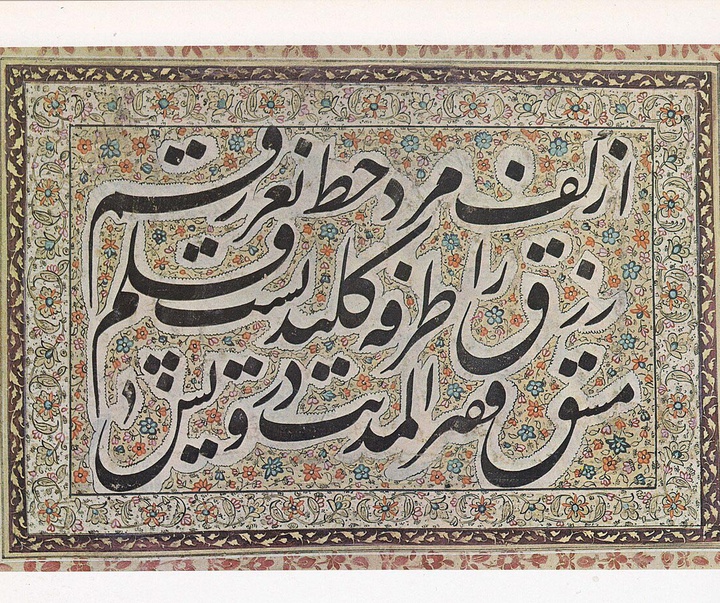 از کف مرد خط نغز رقم
رزق را طرفه کلیدیست قلم
مشق فقیر المذنب درویش